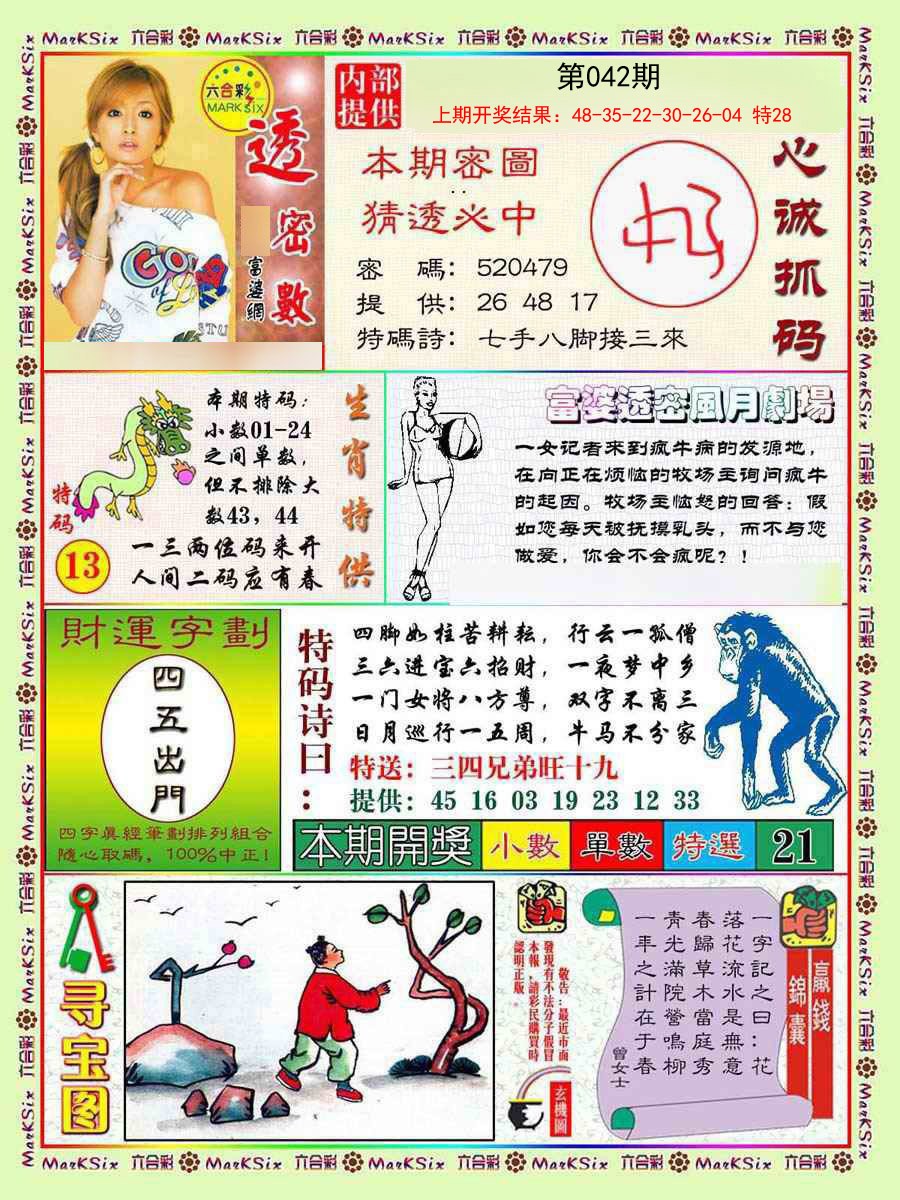 MarKSix 六合彩 MarKSix 六合彩 MarKSix 六合彩 MarKSix 六合彩 MarKSix 六合彩
六合彩
MARK SIX
透密數
富婆網
内部
提供
第042期
上期开奖结果：48-35-22-30-26-04 特28
本期密圖
猜透必中
密 碼：520479
提 供：26 48 17
特碼詩：七手八脚接三來
心诚抓码
特码
13
本期特码：
小数01-24
之间单数，
但不排除大
数43，44
一三两位码来开
人间二码应有春
生肖特供
富婆透密風月劇場
一女记者来到疯牛病的发源地，
在向正在烦恼的牧场主询问疯牛
的起因。牧场主恼怒的回答：假
如您每天被抚摸乳头，而不与您
做爱，你会不会疯呢？！
財運字劃
四五出門
四字眞經筆劃排列組合
隨心取碼，100%中正！
特码诗曰：
四脚如柱苦耕耘，行云一孤僧
三六进宝六招财，一夜梦中乡
一门女将八方尊，双字不离三
日月巡行一五周，牛马不分家
特送：三四兄弟旺十九
提供：45 16 03 19 23 12 33
本期開獎 小數 單數 特選 21
寻宝图
敬告：最近市面
發現有不法分子假冒
本報，請彩民購買時
認明正版。
玄機圖
贏錢
錦囊
一字記之曰：花
落花流水是無意
春歸草木當庭秀
青光滿院鶯鳴柳
一年之計在于春
曾女士
MarKSix 六合彩 MarKSix 六合彩 MarKSix 六合彩 MarKSix 六合彩 MarKSix 六合彩